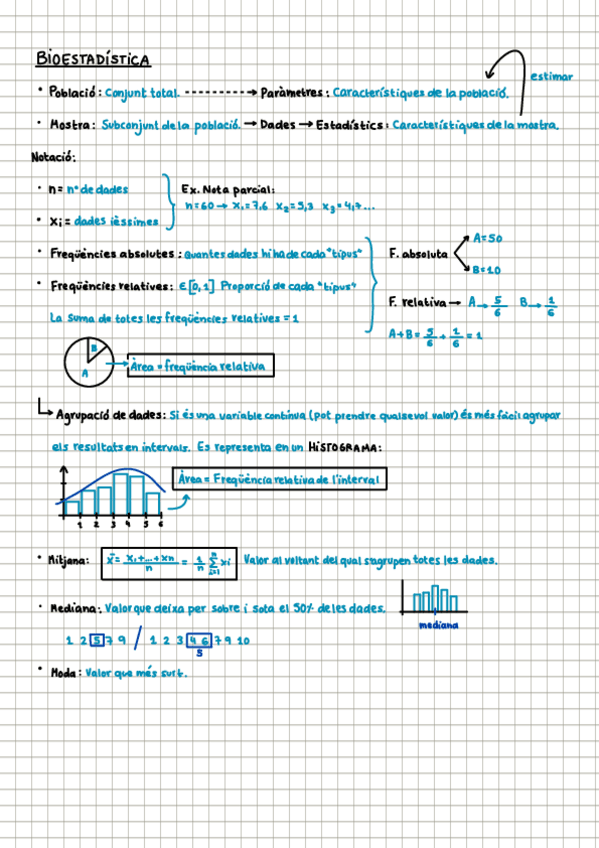 BIOESTADÍSTICA
estimar
• Població: Conjunt total. --------→ Paràmetres: Característiques de la població.
• Mostra: Subconjunt de la població. → Dades → Estadístics: Característiques de la mostra.
Notació:
• n = nº de dades
Ex. Nota parcial:
n=60 → x₁=7,6 x₂=5,3 x₃=4,7...
• xi = dades ièssimes
• Freqüències absolutes: Quantes dades hi ha de cada "tipus"
F. absoluta
A=50
B=10
• Freqüències relatives: ∈[0,1] Proporció de cada "tipus"
F. relativa → A → 5/6 B → 1/6
La suma de totes les freqüències relatives = 1
A+B = 5/6 + 1/6 = 1
B
A
Àrea = freqüència relativa
Agrupació de dades: Si és una variable contínua (pot prendre qualsevol valor) és més fàcil agrupar
els resultats en intervals. Es representa en un HISTOGRAMA:
Àrea = Freqüència relativa de l'interval
1 2 3 4 5 6
• Mitjana: x̄ = x₁+...+xn/n = 1/n Σ xi Valor al voltant del qual s'agrupen totes les dades.
n
i=1
• Mediana: Valor que deixa per sobre i sota el 50% de les dades.
mediana
1 2 5 7 9 / 1 2 3 4 6 7 9 10
5
• Moda: Valor que més surt.